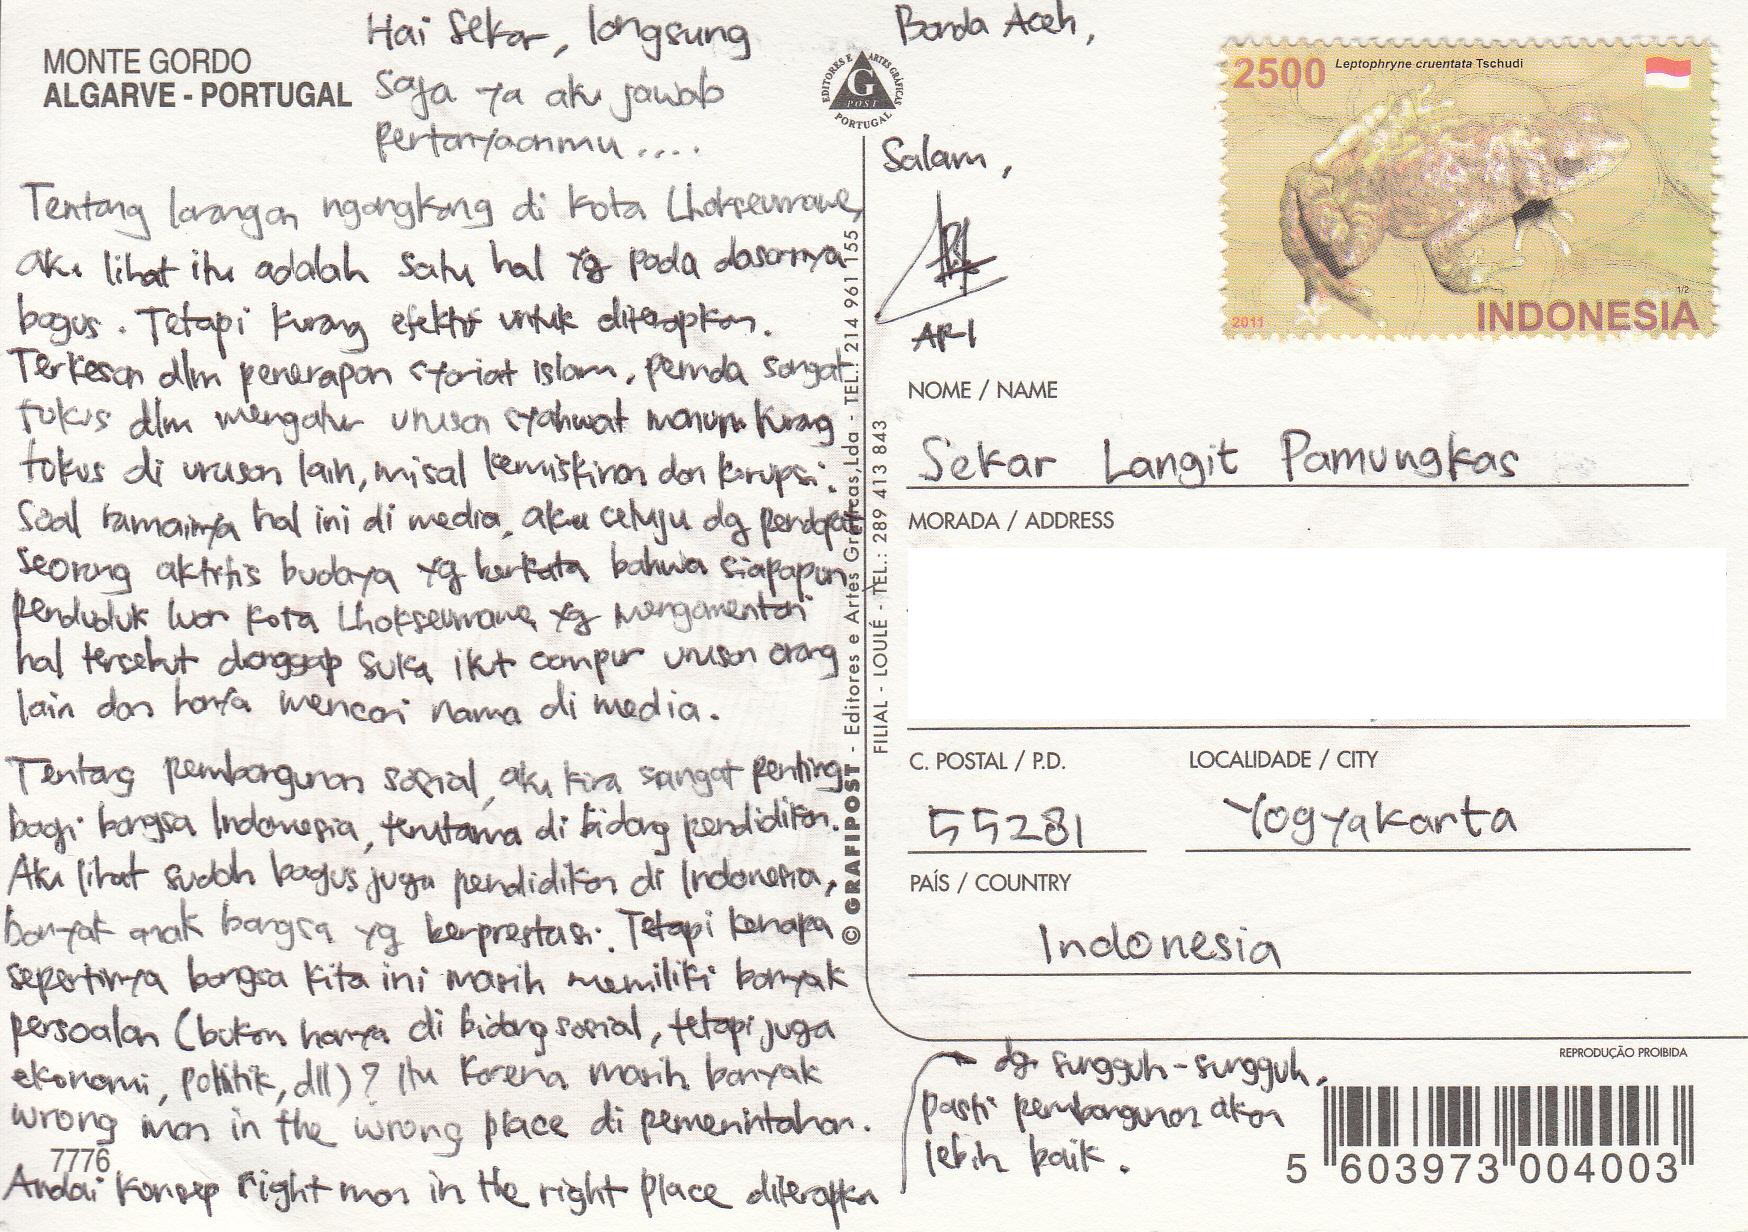 MONTE GORDO
ALGARVE - PORTUGAL
Hai Sekar, langsung
saja ya aku jawab
pertanyaanmu ....
Tentang larangan ngangkang di kota Lhokseumawe,
aku lihat itu adalah satu hal yg pada dasarnya
bagus. Tetapi kurang efektif untuk diterapkan.
Terkesan dlm penerapan syariat islam, pemda sangat
fokus dlm mengatur urusan syahwat namun kurang
fokus di urusan lain, misal kemiskinan dan korupsi.
Soal ramainya hal ini di media, aku setuju dg pendapat
seorang aktifis budaya yg berkata bahwa siapapun
penduduk luar kota Lhokseumawe yg mengomentari
hal tersebut dianggap suka ikut campur urusan orang
lain dan hanya mencari nama di media.
Tentang pembangunan sosial, aku kira sangat penting
bagi bangsa Indonesia, terutama di bidang pendidikan.
Aku lihat sudah bagus juga pendidikan di Indonesia,
banyak anak bangsa yg berprestasi. Tetapi kenapa
sepertinya bangsa kita ini masih memiliki banyak
persoalan (bukan hanya di bidang sosial, tetapi juga
ekonomi, politik, dll)? Itu karena masih banyak
wrong man in the wrong place di pemerintahan.
7776
Andai konsep right man in the right place diterapkan
dg sungguh-sungguh,
pasti pembangunan akan
lebih baik.
EDITORES E ARTES GRÁFICAS
G
POST
PORTUGAL
© GRAFIPOST - Editores e Artes Gráficas,Lda - TEL.: 214 961 155
FILIAL - LOULÉ - TEL.: 289 413 843
Banda Aceh,
Salam,
ARI
2500
Leptophryne cruentata Tschudi
1/2
2011
INDONESIA
NOME / NAME
Sekar Langit Pamungkas
MORADA / ADDRESS
C. POSTAL / P.D.
LOCALIDADE / CITY
55281
Yogyakarta
PAÍS / COUNTRY
Indonesia
REPRODUÇÃO PROIBIDA
5 603973 004003